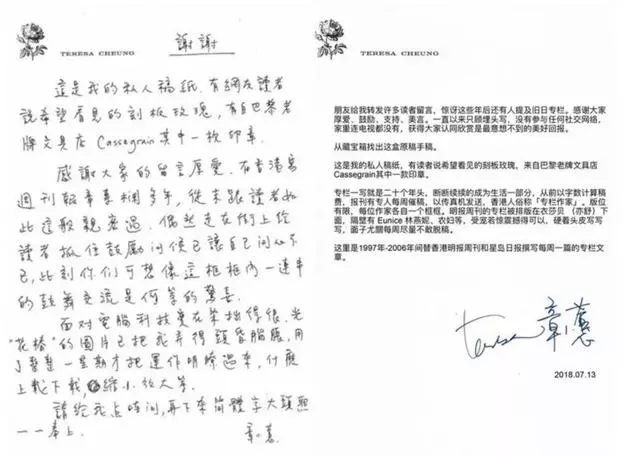 TERESA CHEUNG
謝謝
這是我的私人稿紙。有網友讀者
說希望看見的刻板玫瑰,有自巴黎老
牌文具店 Cassegrain 其中一枚印章。
感謝大家的留言厚愛。在香港寫
週刊報章專欄多年,從未跟讀者如
此這般親密過。偶然走在街上給
讀者抓住鼓勵问候已讓自己
已,此刻你们可想像這框框內一連串
的鼓舞交流是何等的驚喜。
面对電腦科技实在笨拙得很,光
"花椿"的圖片已把我弄得頭昏腦脹,用
了整整一星期才把運作明瞭過來,什麼
上載下載,縮小放大等。
請給我点時间,再下來简體字大頭照
一一奉上。
章小蕙
TERESA CHEUNG
朋友给我转发许多读者留言,惊讶这些年后还有人提及旧日专栏。感谢大家
厚爱、鼓励、支持、美言。一直以来只顾埋头写,没有参与任何社交网络,
家里连电视都没有,获得大家认同欣赏是最意想不到的美好回报。
从藏宝箱找出这盒原稿手稿。
这是我的私人稿纸,有读者说希望看见的刻板玫瑰,来自巴黎老牌文具店
Cassegrain其中一款印章。
专栏一写就是二十个年头,断断续续的成为生活一部分,从前以字数计算稿
费,报刊有专人每周催稿,以传真机发送,香港人俗称「专栏作家」。版位
有限,每位作家各自一个框框。明报周刊的专栏被排版在衣莎贝 (亦舒)下
面,隔壁有 Eunice 林燕妮、农妇等,受宠若惊震撼得可以,硬着头皮写写
写,面子尤关每周尽量不敢脱稿。
这里是1997年-2006年间替香港明报周刊和星岛日报撰写每周一篇的专栏文
章。
Teresa 章小蕙
2018.07.13